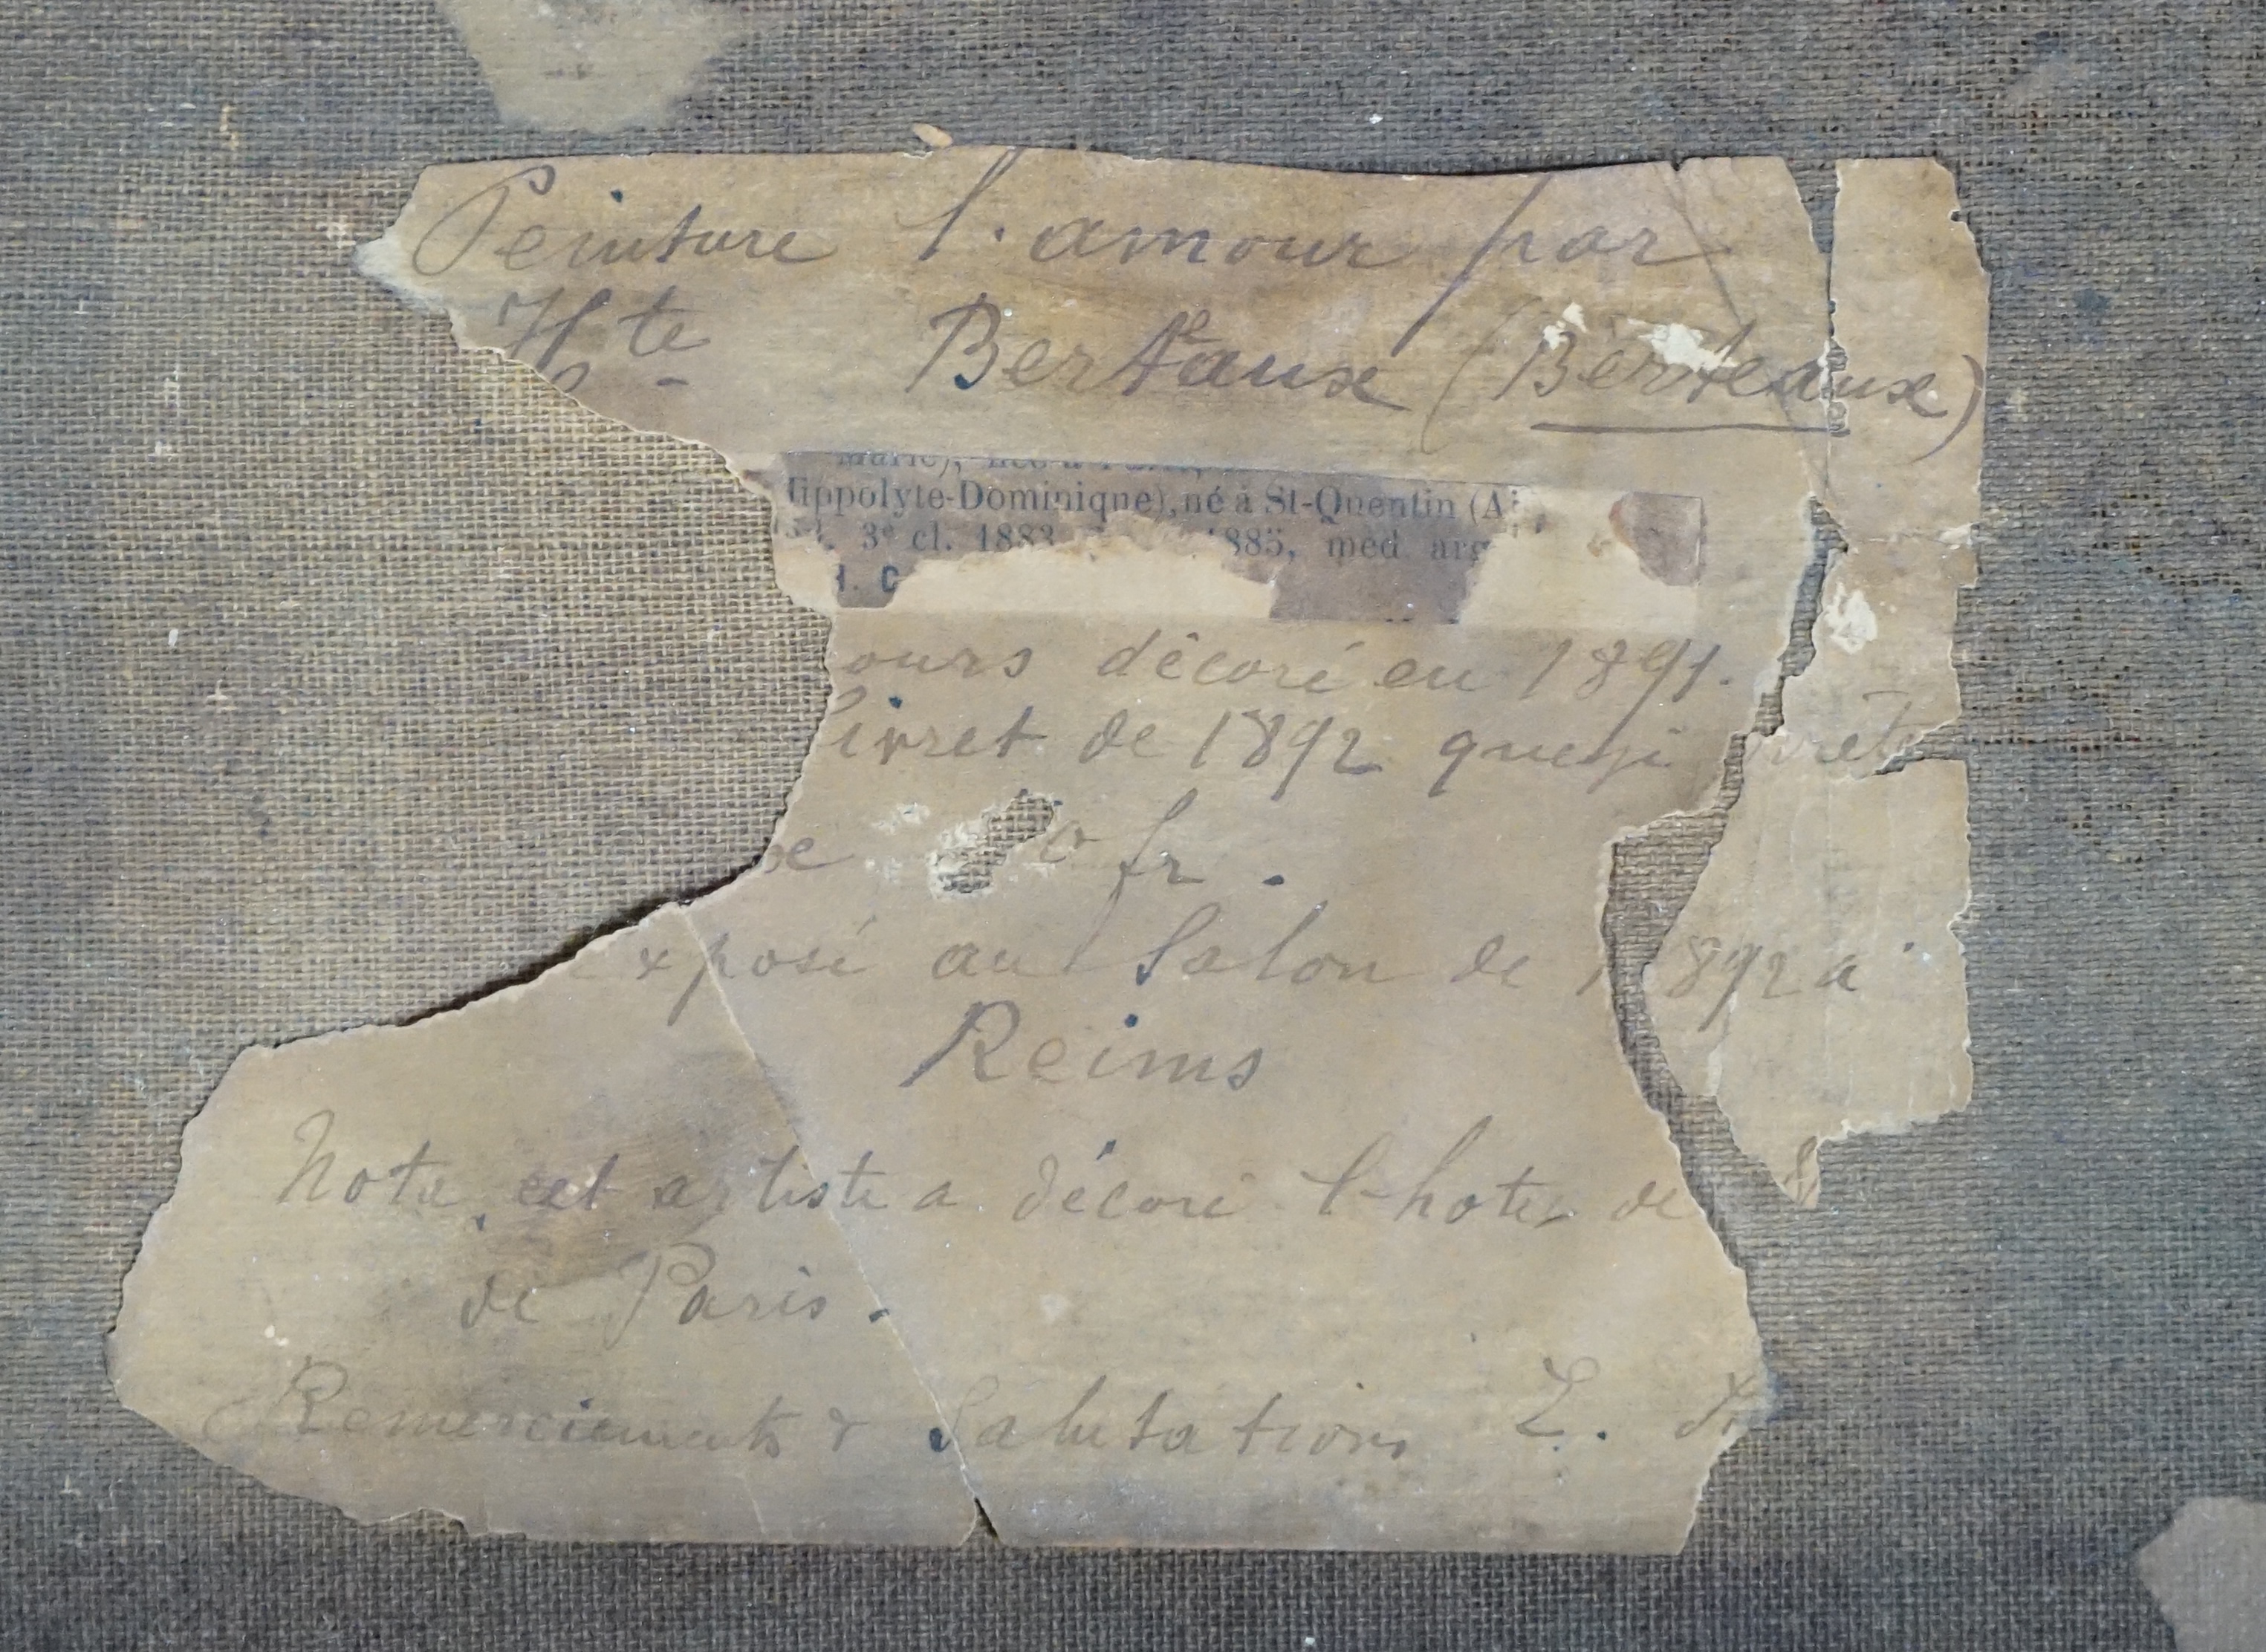 Peinture l'amour par
Hte Bertaux (Berteaux)
Marie),
Hippolyte-Dominique), né à St-Quentin (Ai
3e cl. 1883 1885, med arg
H. C
ours décoré en 1891.
livret de 1892 que prête
fr.
exposé au Salon de 1892 a
Reims
Nota, cet artiste a décoré l'hotel de
de Paris.
Remerciements & Salutations